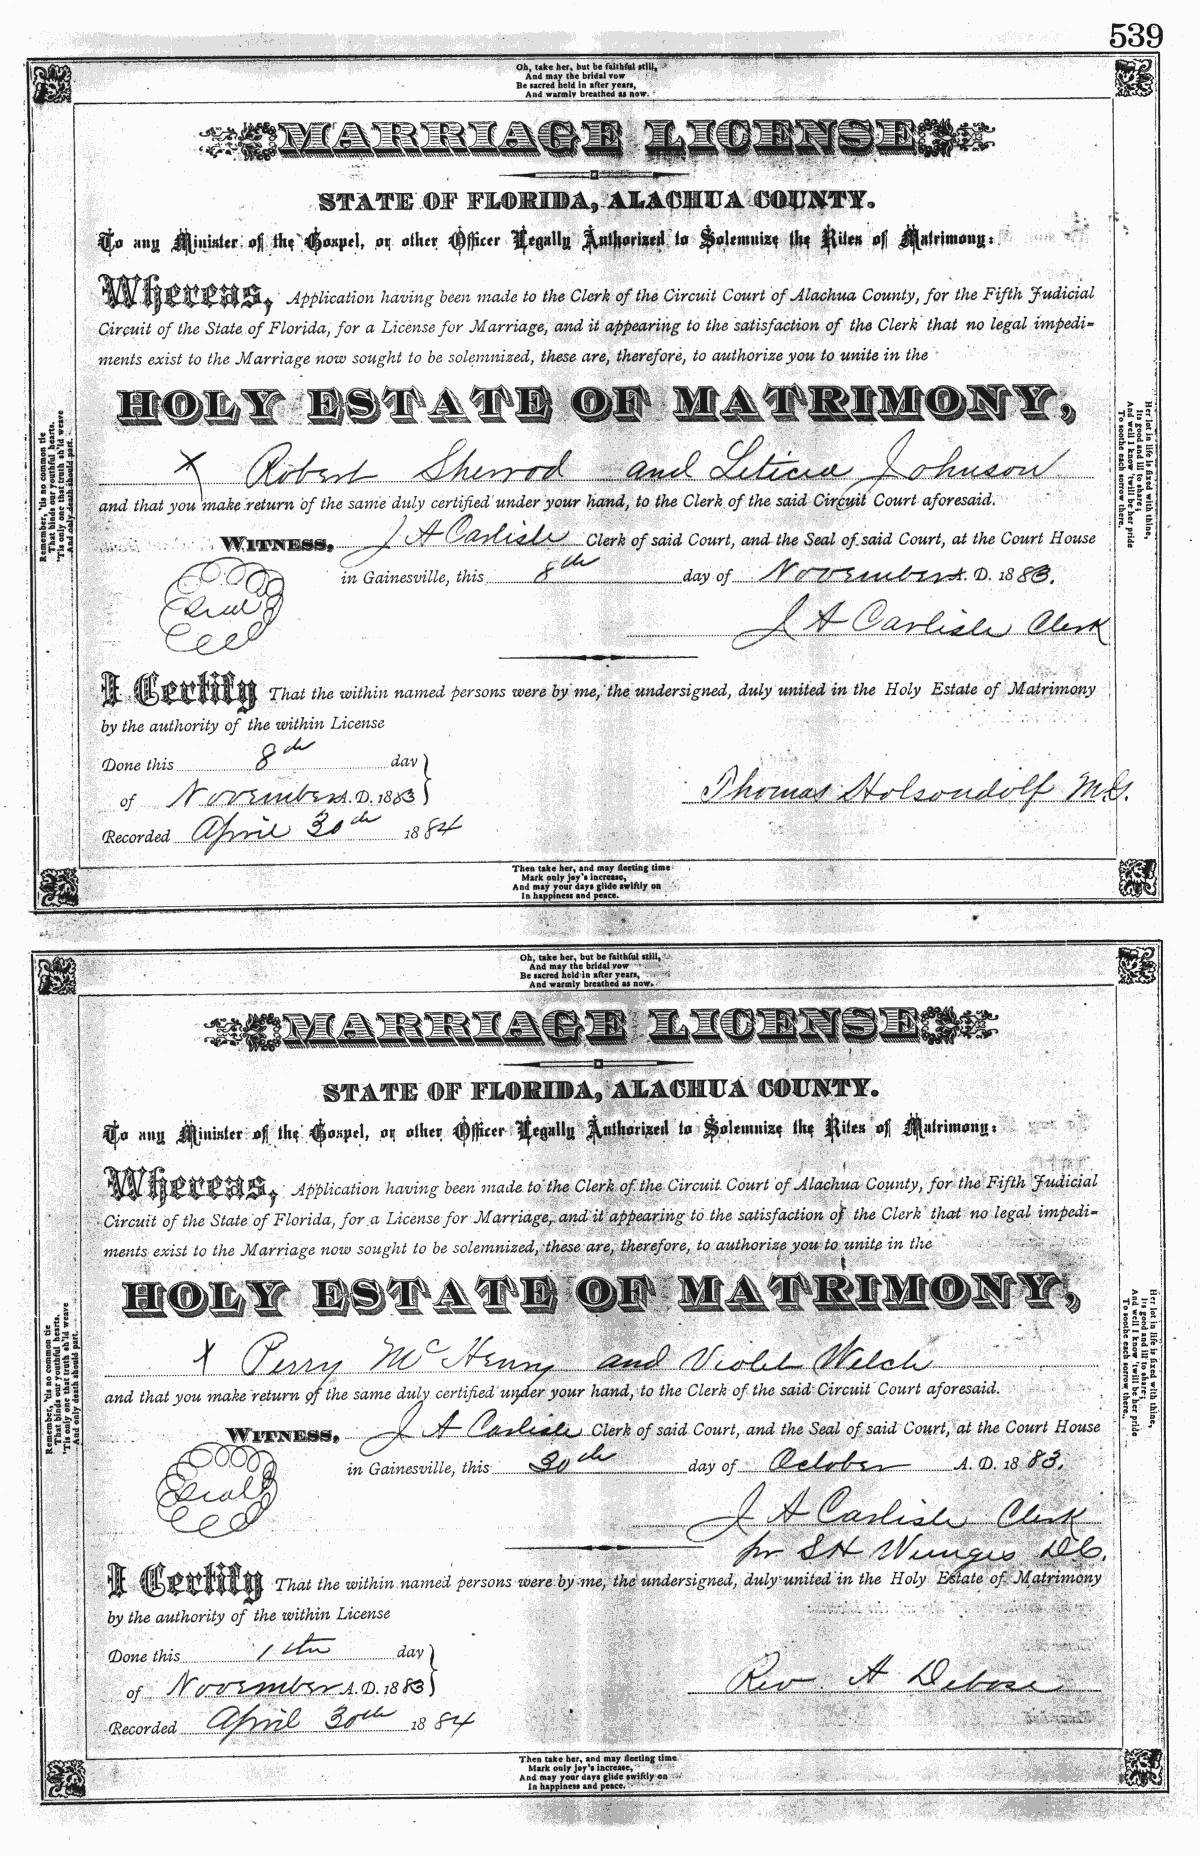 539
Oh, take her, but be faithful still,
And may the bridal vow
Be sacred held in after years,
And warmly breathed as now.
MARRIAGE LICENSE
STATE OF FLORIDA, ALACHUA COUNTY.
To any Minister of the Gospel, or other Officer Legally Authorized to Solemnize the Rites of Matrimony:
Whereas, Application having been made to the Clerk of the Circuit Court of Alachua County, for the Fifth Judicial
Circuit of the State of Florida, for a License for Marriage, and it appearing to the satisfaction of the Clerk that no legal impedi-
ments exist to the Marriage now sought to be solemnized, these are, therefore, to authorize you to unite in the
HOLY ESTATE OF MATRIMONY,
X Robert Sherrod and Leticia Johnson
and that you make return of the same duly certified under your hand, to the Clerk of the said Circuit Court aforesaid.
WITNESS, J A Carlisle Clerk of said Court, and the Seal of said Court, at the Court House
in Gainesville, this 8th day of November A. D. 1883.
Seal
J A Carlisle Clerk
I Certify That the within named persons were by me, the undersigned, duly united in the Holy Estate of Matrimony
by the authority of the within License
Done this 8th day
of November A. D. 1883
Thomas Holsondolf M.G.
Recorded April 30th 1884
Remember, 'tis no common tie
That binds our youthful hearts.
'Tis only one that truth sh'ld weave
And only death should part.
Her lot in life is fixed with thine,
Its good and ill to share;
And well I know 'twill be her pride
To soothe each sorrow there.
Then take her, and may fleeting time
Mark only joy's increase,
And may your days glide swiftly on
In happiness and peace.
Oh, take her, but be faithful still,
And may the bridal vow
Be sacred held in after years,
And warmly breathed as now.
MARRIAGE LICENSE
STATE OF FLORIDA, ALACHUA COUNTY.
To any Minister of the Gospel, or other Officer Legally Authorized to Solemnize the Rites of Matrimony:
Whereas, Application having been made to the Clerk of the Circuit Court of Alachua County, for the Fifth Judicial
Circuit of the State of Florida, for a License for Marriage, and it appearing to the satisfaction of the Clerk that no legal impedi-
ments exist to the Marriage now sought to be solemnized, these are, therefore, to authorize you to unite in the
HOLY ESTATE OF MATRIMONY,
X Perry McHenry and Violet Welch
and that you make return of the same duly certified under your hand, to the Clerk of the said Circuit Court aforesaid.
WITNESS, J A Carlisle Clerk of said Court, and the Seal of said Court, at the Court House
in Gainesville, this 30th day of October A. D. 1883.
Seal
J A Carlisle Clerk
pr S H Wienges D.C.
I Certify That the within named persons were by me, the undersigned, duly united in the Holy Estate of Matrimony
by the authority of the within License
Done this 1th day
of November A. D. 1883
Rev. A Debose
Recorded April 30th 1884
Remember, 'tis no common tie
That binds our youthful hearts.
'Tis only one that truth sh'ld weave
And only death should part.
Her lot in life is fixed with thine,
Its good and ill to share;
And well I know 'twill be her pride
To soothe each sorrow there.
Then take her, and may fleeting time
Mark only joy's increase,
And may your days glide swiftly on
In happiness and peace.